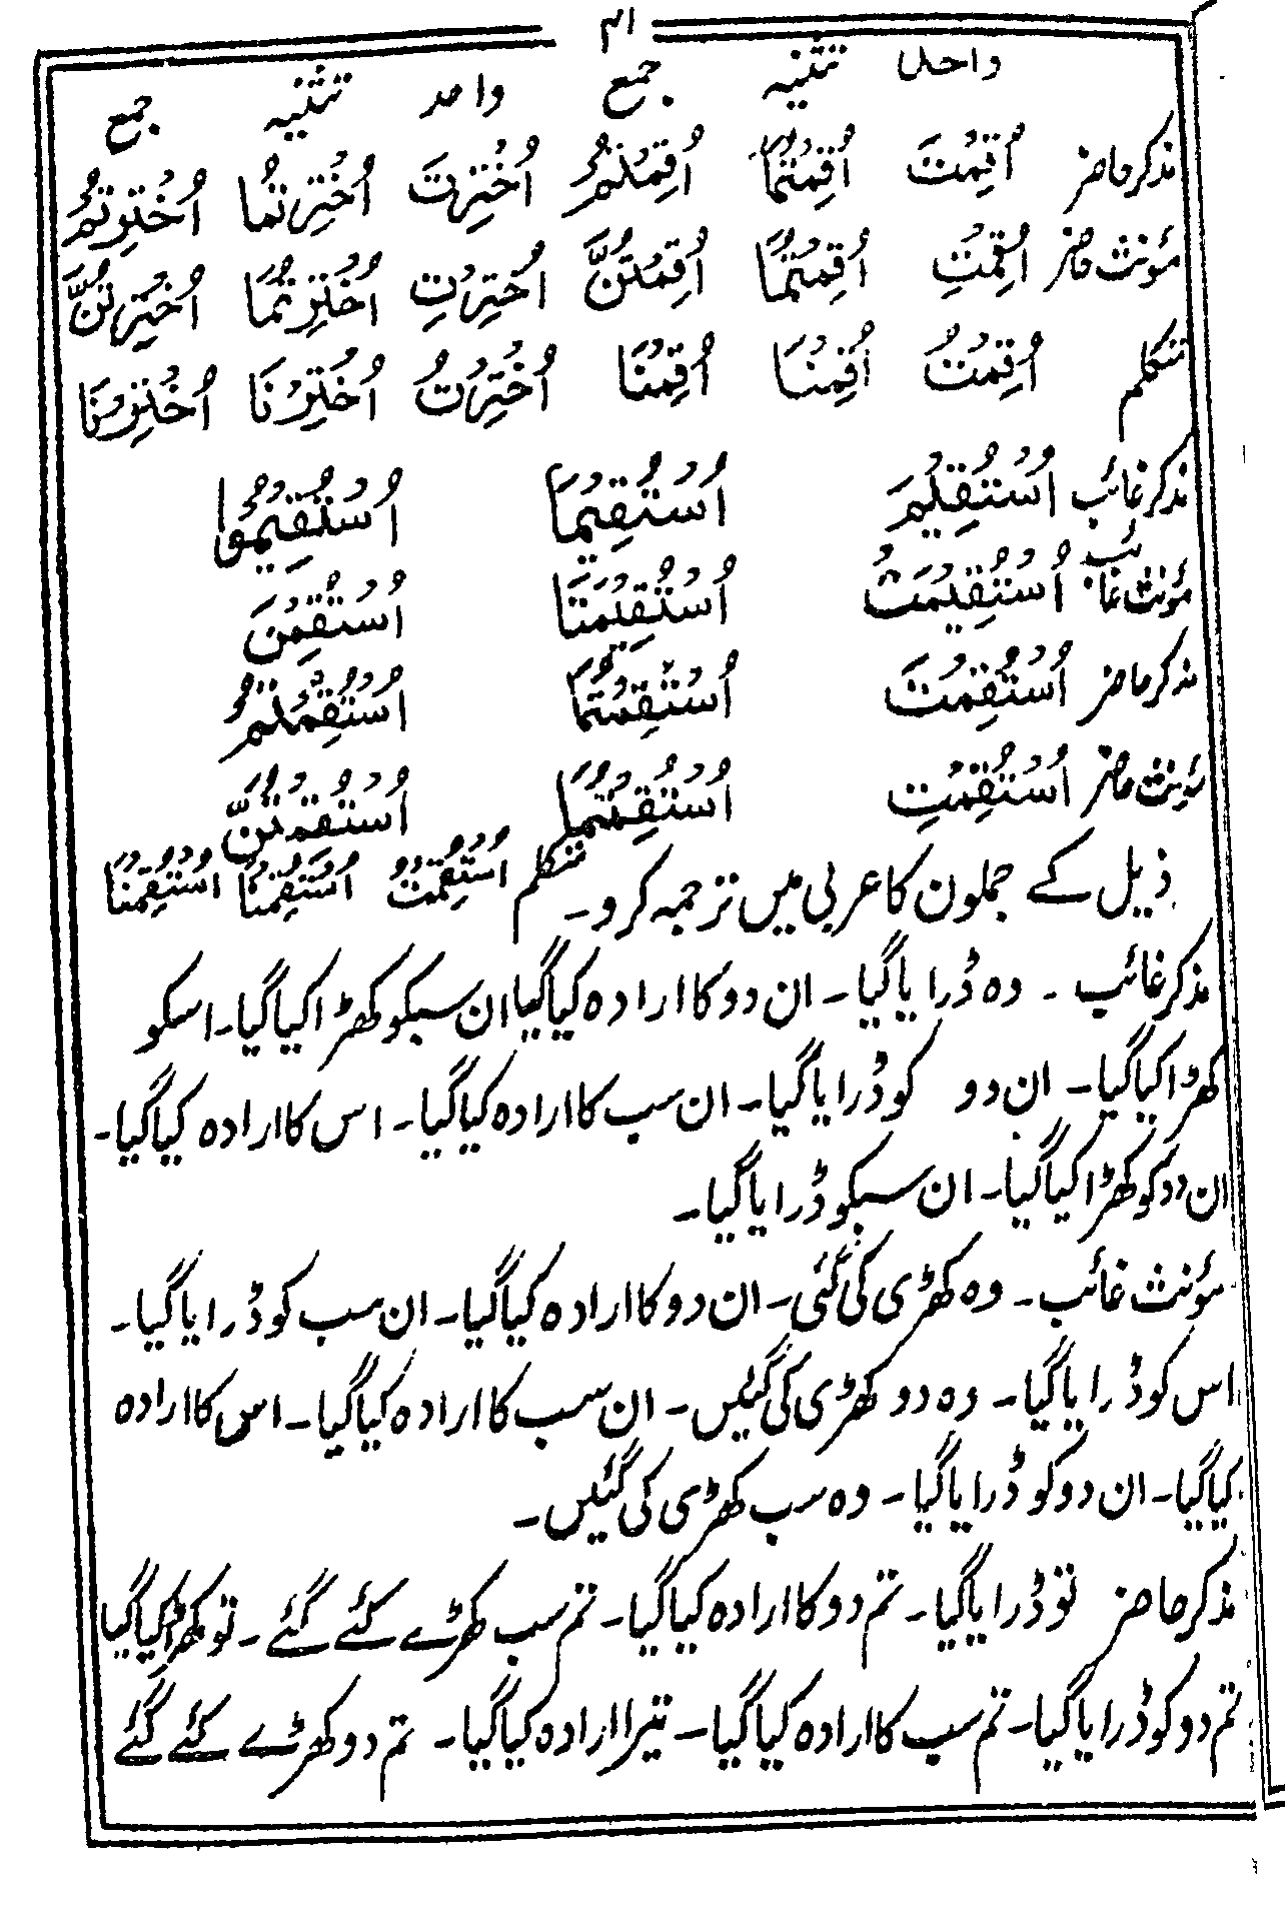 ۴۱
واحد تثنیہ جمع واحد تثنیہ جمع
مذکر حاضر اُقِمْتَ اُقِمْتُمَا اُقِمْتُمْ اُخْتِرْتَ اُخْتِرْتُمَا اُخْتِرْتُمْ
مؤنث حاضر اُقِمْتِ اُقِمْتُمَا اُقِمْتُنَّ اُخْتِرْتِ اُخْتِرْتُمَا اُخْتِرْتُنَّ
متکلم اُقِمْتُ اُقِمْنَا اُقِمْنَا اُخْتِرْتُ اُخْتِرْنَا اُخْتِرْنَا
مذکر غائب اُسْتُقِيْمَ اُسْتُقِيْمَا اُسْتُقِيْمُوْا
مؤنث غائب اُسْتُقِيْمَتْ اُسْتُقِيْمَتَا اُسْتُقِمْنَ
مذکر حاضر اُسْتُقِمْتَ اُسْتُقِمْتُمَا اُسْتُقِمْتُمْ
مؤنث حاضر اُسْتُقِمْتِ اُسْتُقِمْتُمَا اُسْتُقِمْتُنَّ
متکلم اُسْتُقِمْتُ اُسْتُقِمْنَا اُسْتُقِمْنَا
ذیل کے جملون کا عربی میں ترجمہ کرو۔
مذکر غائب ۔ وہ ڈرایا گیا۔ ان دو کا ارادہ کیا گیا ان سبکو کھڑا کیا گیا۔ اسکو
کھڑا کیا گیا۔ ان دو کو ڈرایا گیا۔ ان سب کا ارادہ کیا گیا۔ اس کا ارادہ کیا گیا۔
ان دو کو کھڑا کیا گیا۔ ان سبکو ڈرایا گیا۔
مؤنث غائب۔ وہ کھڑی کی گئی۔ ان دو کا ارادہ کیا گیا۔ ان سب کو ڈرایا گیا۔
اس کو ڈرایا گیا۔ وہ دو کھڑی کی گئیں۔ ان سب کا ارادہ کیا گیا۔ اس کا ارادہ
کیا گیا۔ ان دو کو ڈرایا گیا۔ وہ سب کھڑی کی گئیں۔
مذکر حاضر تو ڈرایا گیا۔ تم دو کا ارادہ کیا گیا۔ تم سب کھڑے کئے گئے۔ تو کھڑا کیا گیا
تم دو کو ڈرایا گیا۔ تم سب کا ارادہ کیا گیا۔ تیرا ارادہ کیا گیا۔ تم دو کھڑے کئے گئے